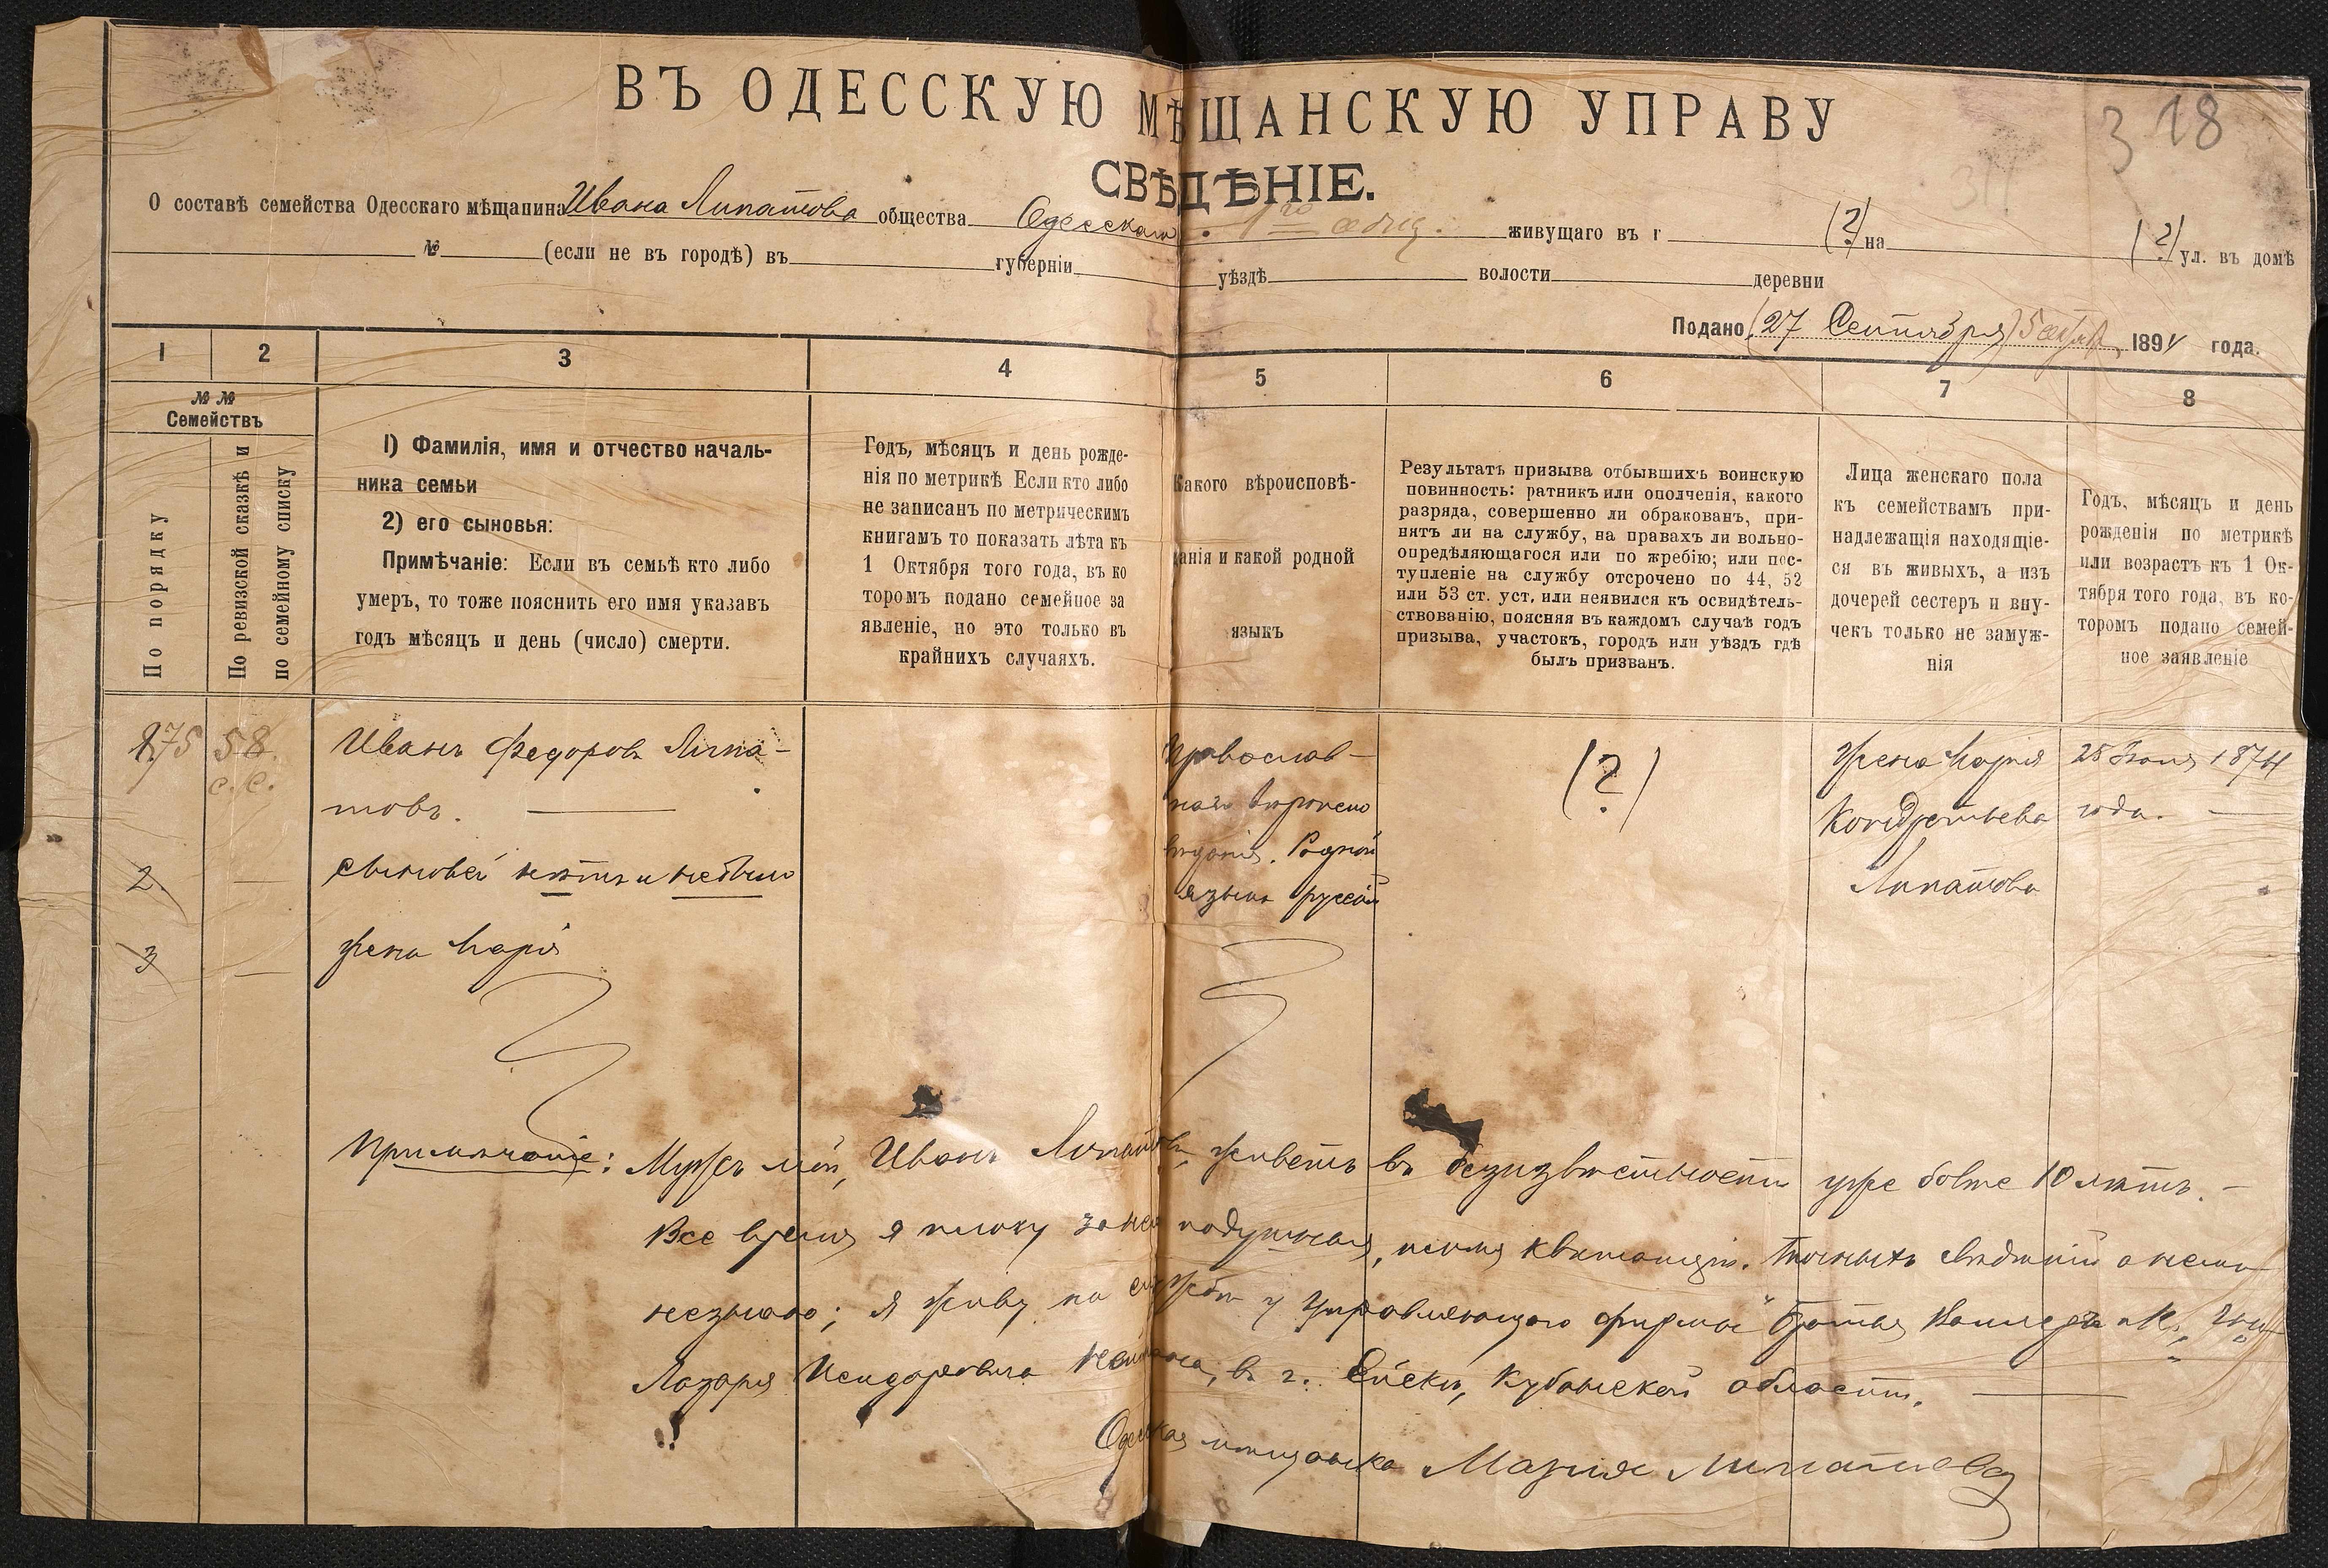 ВЪ ОДЕССКУЮ МѢЩАНСКУЮ УПРАВУ
318
СВѢДѢНІЕ.
О составѣ семейства Одесскаго мѣщанина Ивана Липатова общества Одесскаго 1го общ. живущаго въ г (?) на (?) ул. въ домѣ
№ (если не въ городѣ) въ губерніи уѣздѣ волости деревни
Подано (27 Сентября) 5 октября 1894 года.
1 2 3 4 5 6 7 8
№ №
Семействъ
По порядку
По ревизской сказкѣ и
по семейному списку
1) Фамилія, имя и отчество началь-
ника семьи
2) его сыновья:
Примѣчаніе: Если въ семьѣ кто либо
умеръ, то тоже пояснить его имя указавъ
годъ мѣсяцъ и день (число) смерти.
Годъ, мѣсяцъ и день рожде-
нія по метрикѣ Если кто либо
не записанъ по метрическимъ
книгамъ то показать лѣта къ
1 Октября того года, въ ко
торомъ подано семейное за
явленіе, но это только въ
крайнихъ случаяхъ.
Какого вѣроисповѣ-
данія и какой родной
языкъ
Результатъ призыва отбывшихъ воинскую
повинность: ратникъ или ополченія, какого
разряда, совершенно ли обракованъ, при-
нятъ ли на службу, на правахъ ли вольно-
опредѣляющагося или по жребію; или пос-
тупленіе на службу отсрочено по 44, 52
или 53 ст. уст. или неявился къ освидѣтель-
ствованію, поясняя въ каждомъ случаѣ годъ
призыва, участокъ, городъ или уѣздъ гдѣ
былъ призванъ.
Лица женскаго пола
къ семействамъ при-
надлежащія находящіе-
ся въ живыхъ, а изъ
дочерей сестеръ и вну-
чекъ только не замуж-
нія
Годъ, мѣсяцъ и день
рожденія по метрикѣ
или возрастъ къ 1 Ок-
тября того года, въ ко-
торомъ подано семей-
ное заявленіе
175 58
с.с.
Иванъ Федоровъ Липа-
товъ.
Православ-
наго вѣроиспо
вѣданія. Родной
языкъ русскій
(?)
Жена Марія
Кондратьева
Липатова
25 Іюля 1874
года.
2 — сыновей нѣтъ и не было
3 — жена Марія
Примѣчаніе: Мужъ мой, Иванъ Липатовъ, живетъ въ безизвѣстности уже болѣе 10 лѣтъ. —
Все время я плачу за него подушныя, имѣя квитанціи. Точныхъ свѣдѣній о немъ
незнаю; я живу на службѣ у Управляющаго фирмы "Братья
Лазаря Исидоровича въ г. Ейскѣ, Кубанской области.
Одесская мѣщанка Мария Липатова